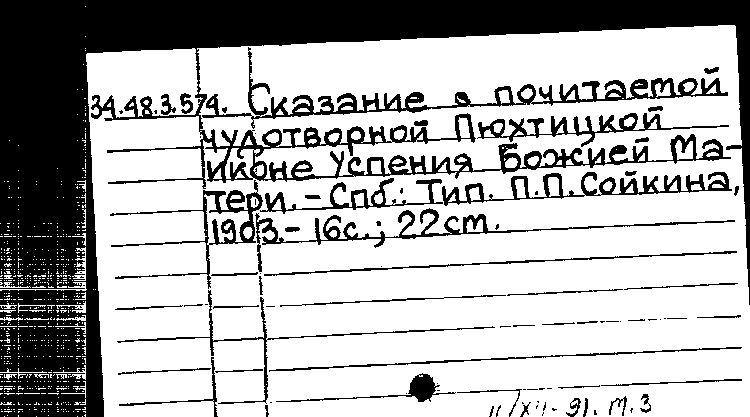 34.48.3.574. Сказание о почитаемой
чудотворной Пюхтицкой
иконе Успения Божией Ма-
тери. – Спб.: Тип. П.П.Сойкина,
1903.– 16с.; 22 cm.
91. м.3